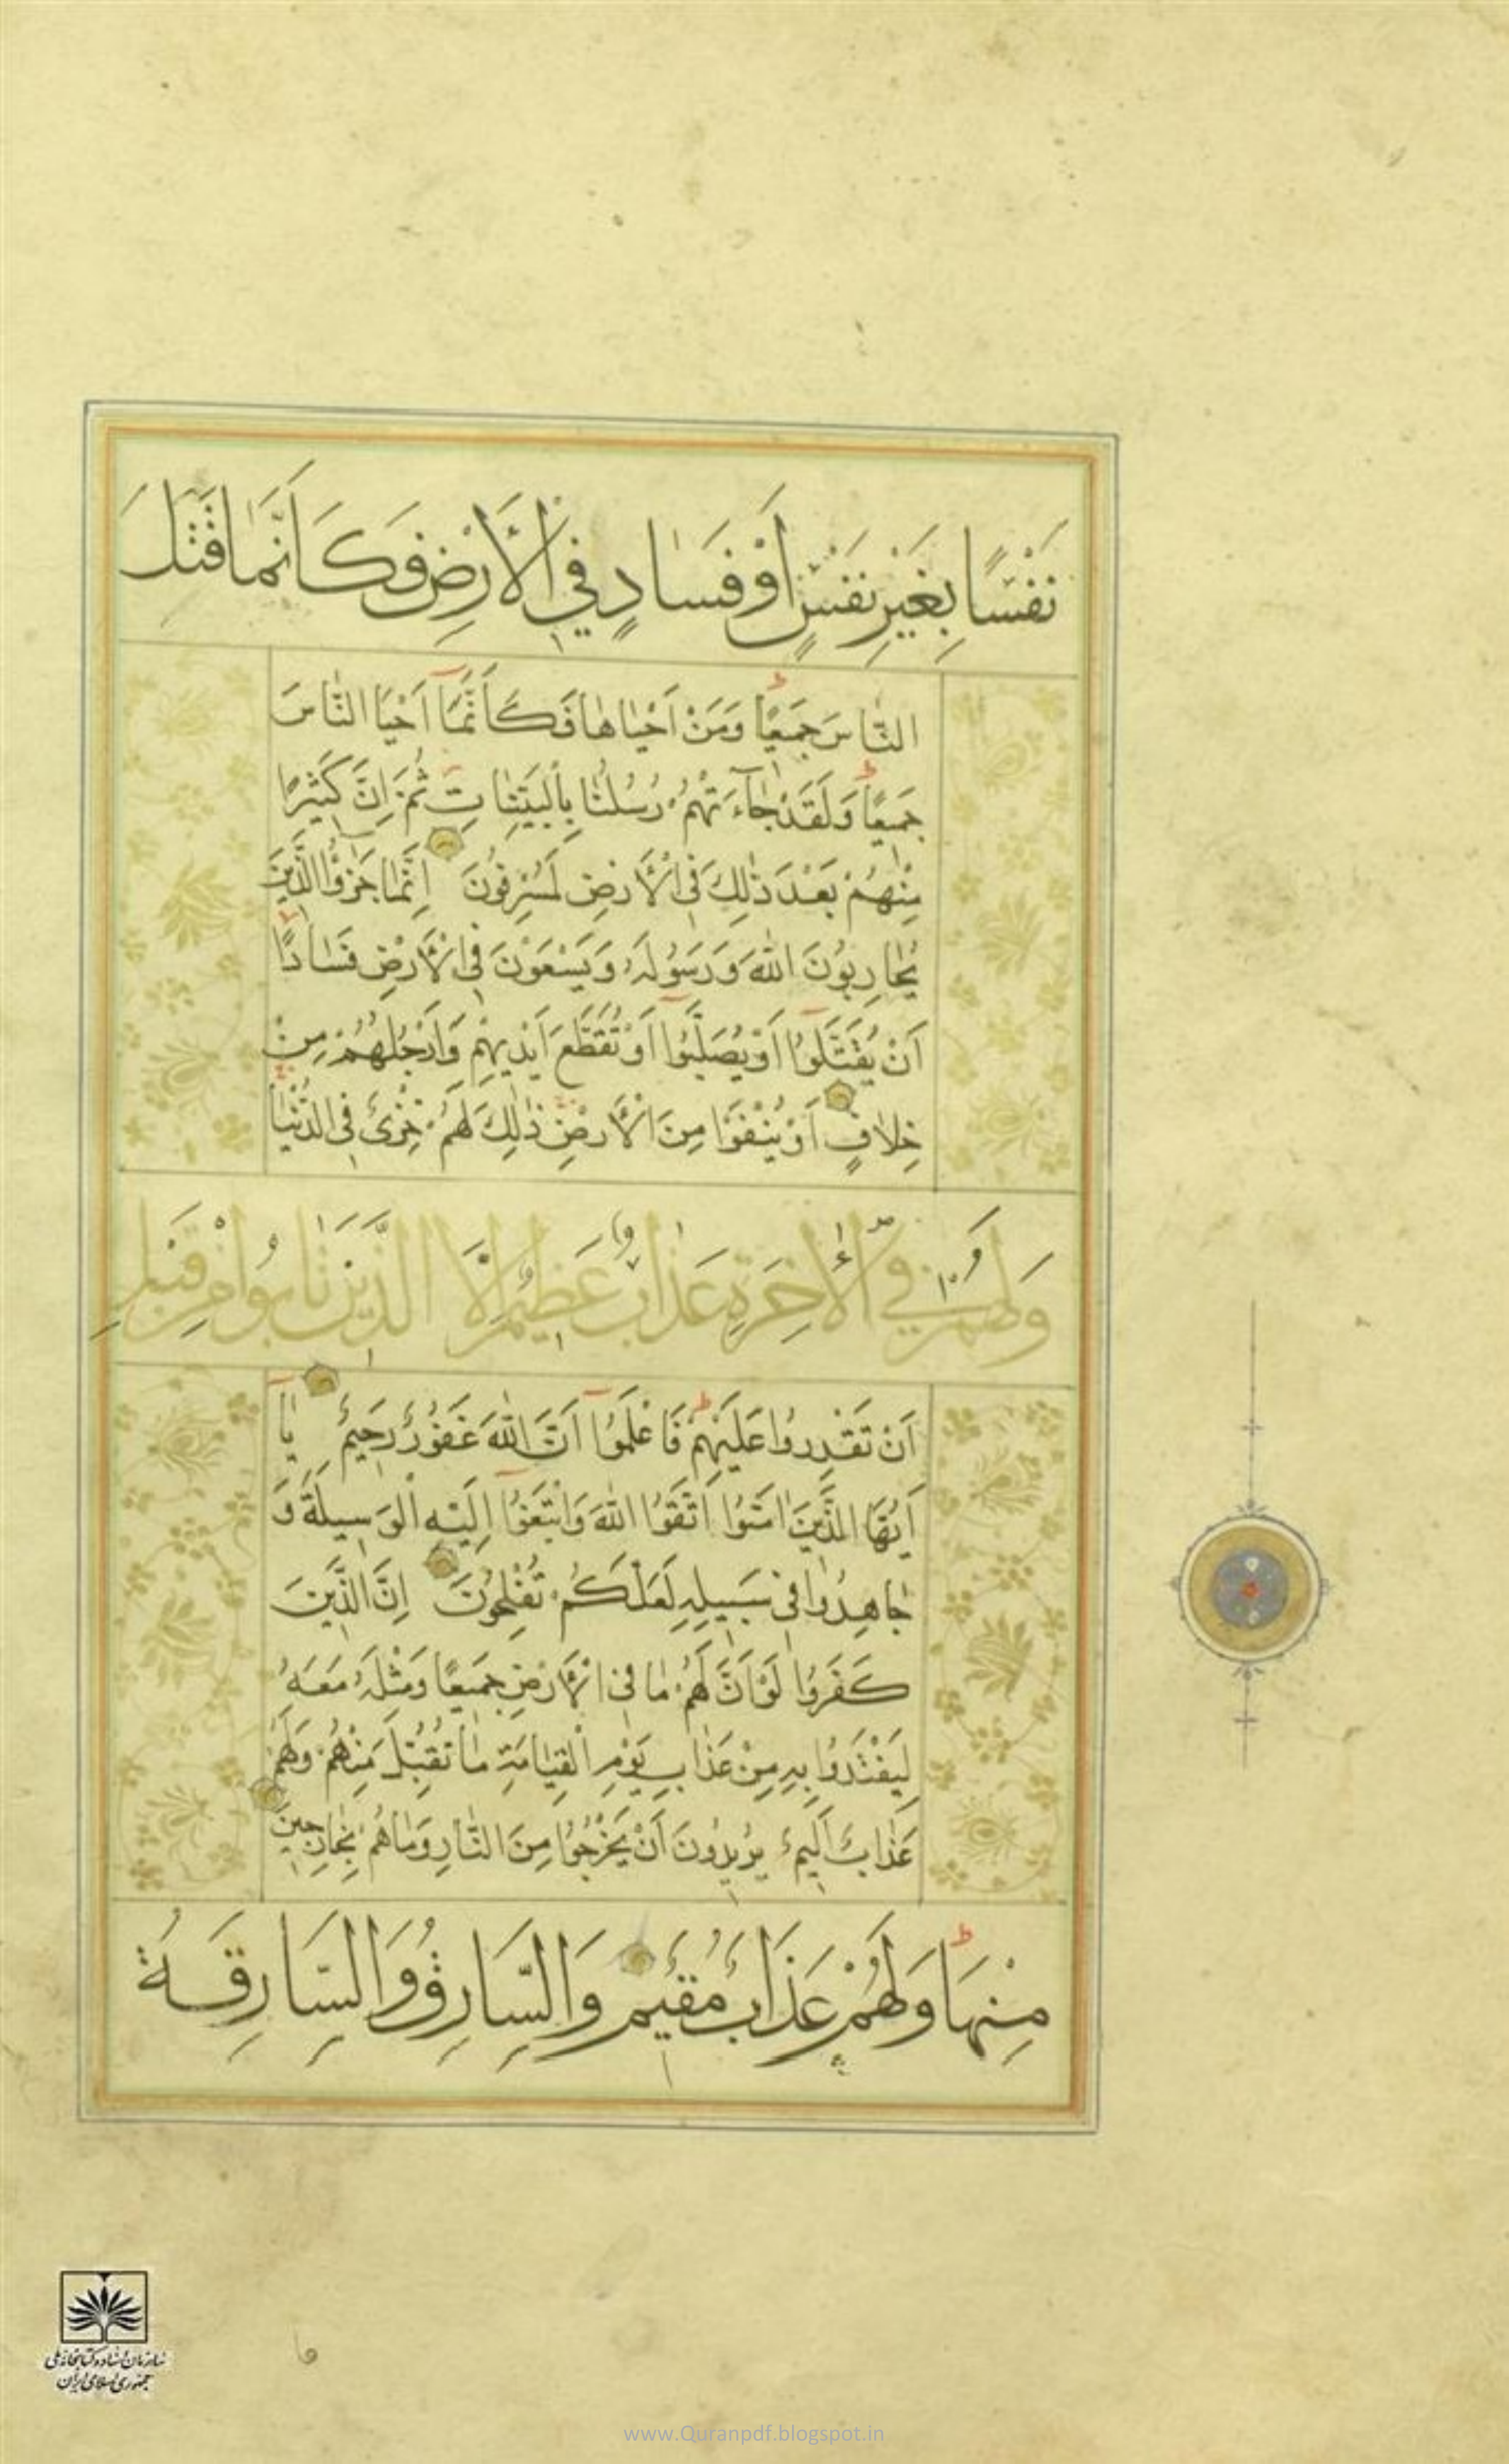 نَفْسًا بِغَيْرِ نَفْسٍ أَوْ فَسَادٍ فِي الْأَرْضِ فَكَأَنَّمَا قَتَلَ
النَّاسَ جَمِيعًا وَمَنْ اَحْيَاهَا فَكَاَنَّمَا اَحْيَا النَّاسَ
جَمِيعًا وَلَقَدْ جَآءَتْهُمْ رُسُلُنَا بِالْبَيِّنَاتِ ثُمَّ اِنَّ كَثِيرًا
مِنْهُمْ بَعْدَ ذٰلِكَ فِي الْاَرْضِ لَمُسْرِفُونَ اِنَّمَا جَزٰٓؤُا الَّذِينَ
يُحَارِبُونَ اللّٰهَ وَرَسُولَهُ وَيَسْعَوْنَ فِي الْاَرْضِ فَسَادًا
اَنْ يُقَتَّلُوٓا اَوْ يُصَلَّبُوٓا اَوْ تُقَطَّعَ اَيْدِيهِمْ وَاَرْجُلُهُمْ مِنْ
خِلَافٍ اَوْ يُنْفَوْا مِنَ الْاَرْضِ ذٰلِكَ لَهُمْ خِزْيٌ فِي الدُّنْيَا
وَلَهُمْ فِي الْاٰخِرَةِ عَذَابٌ عَظِيمٌ اِلَّا الَّذِينَ تَابُوا مِنْ قَبْلِ
اَنْ تَقْدِرُوا عَلَيْهِمْ فَاعْلَمُوٓا اَنَّ اللّٰهَ غَفُورٌ رَحِيمٌ يَآ
اَيُّهَا الَّذِينَ اٰمَنُوا اتَّقُوا اللّٰهَ وَابْتَغُوٓا اِلَيْهِ الْوَسِيلَةَ وَ
جَاهِدُوا فِي سَبِيلِهِ لَعَلَّكُمْ تُفْلِحُونَ اِنَّ الَّذِينَ
كَفَرُوا لَوْ اَنَّ لَهُمْ مَا فِي الْاَرْضِ جَمِيعًا وَمِثْلَهُ مَعَهُ
لِيَفْتَدُوا بِهِ مِنْ عَذَابِ يَوْمِ الْقِيَامَةِ مَا تُقُبِّلَ مِنْهُمْ وَلَهُمْ
عَذَابٌ اَلِيمٌ يُرِيدُونَ اَنْ يَخْرُجُوا مِنَ النَّارِ وَمَا هُمْ بِخَارِجِينَ
مِنْهَا وَلَهُمْ عَذَابٌ مُقِيمٌ وَالسَّارِقُ وَالسَّارِقَةُ
سازمان اسناد و کتابخانه ملی
جمهوری اسلامی ایران
www.Quranpdf.blogspot.in